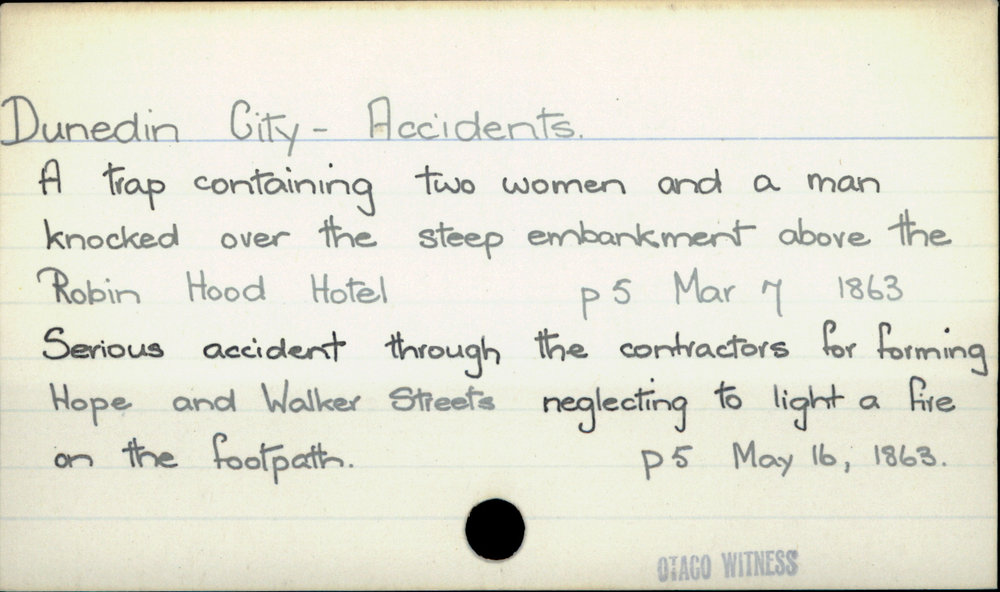 Dunedin City - Accidents.
A trap containing two women and a man
knocked over the steep embankment above the
Robin Hood Hotel p 5 Mar 7 1863
Serious accident through the contractors for forming
Hope and Walker Streets neglecting to light a fire
on the footpath. p 5 May 16, 1863.
OTAGO WITNESS